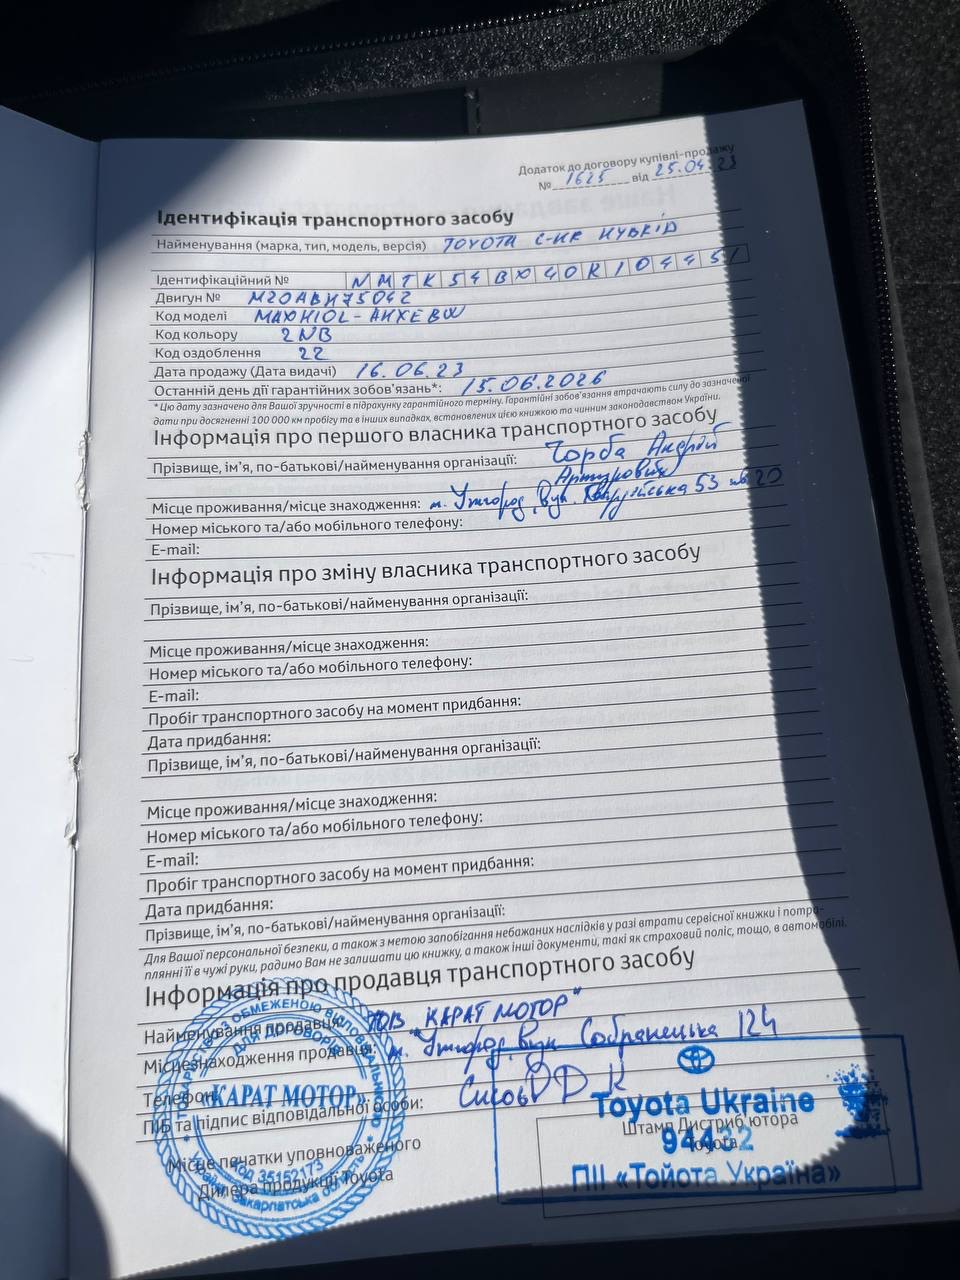 Додаток до договору купівлі-продажу
№ 1625 від 25.04.23
Ідентифікація транспортного засобу
Найменування (марка, тип, модель, версія) TOYOTA C-HR HYBRID
Ідентифікаційний № NMTK54BX040R104451
Двигун №
Код моделі
Код кольору 2NB
Код оздоблення 22
Дата продажу (Дата видачі) 16.06.23
Останній день дії гарантійних зобов'язань*: 15.06.2026
* Цю дату зазначено для Вашої зручності в підрахунку гарантійного терміну. Гарантійні зобов'язання втрачають силу до зазначеної
дати при досягненні 100 000 км пробігу та в інших випадках, встановлених цією книжкою та чинним законодавством України.
Інформація про першого власника транспортного засобу
Прізвище, ім'я, по-батькові/найменування організації: Чорба Андрій
Артурович
Місце проживання/місце знаходження: м. Ужгород, вул. 53 кв 20
Номер міського та/або мобільного телефону:
E-mail:
Інформація про зміну власника транспортного засобу
Прізвище, ім'я, по-батькові/найменування організації:
Місце проживання/місце знаходження:
Номер міського та/або мобільного телефону:
E-mail:
Пробіг транспортного засобу на момент придбання:
Дата придбання:
Прізвище, ім'я, по-батькові/найменування організації:
Місце проживання/місце знаходження:
Номер міського та/або мобільного телефону:
E-mail:
Пробіг транспортного засобу на момент придбання:
Дата придбання:
Прізвище, ім'я, по-батькові/найменування організації:
Для Вашої персональної безпеки, а також з метою запобігання небажаних наслідків у разі втрати сервісної книжки і потра-
плянні її в чужі руки, радимо Вам не залишати цю книжку, а також інші документи, такі як страховий поліс, тощо, в автомобілі.
Інформація про продавця транспортного засобу
Найменування продавця: ТОВ "КАРАТ МОТОР"
Місцезнаходження продавця: м. Ужгород, вул Собранецька 124
Телефон:
ПІБ та підпис відповідальної особи:
Місце печатки уповноваженого
Дилера продукції Toyota
ТОВАРИСТВО З ОБМЕЖЕНОЮ ВІДПОВІДАЛЬНІСТЮ
ДЛЯ ДОГОВОРІВ
«КАРАТ МОТОР»
Код 35152173
Україна Закарпатська область
Toyota Ukraine
Штамп Дистриб'ютора
Toyota
94432
ПІІ «Тойота Україна»